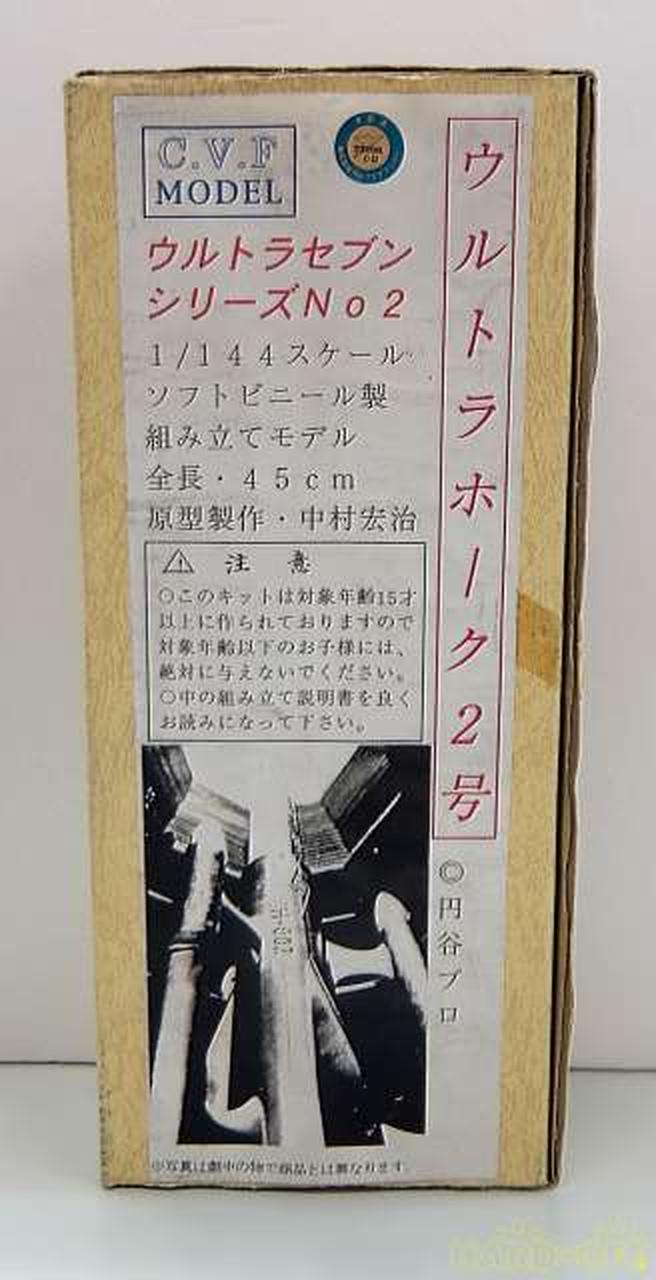 C.V.F
MODEL
ウルトラセブン
シリーズNo2
1/144スケール
ソフトビニール製
組み立てモデル
全長・45cm
原型製作・中村宏治
⚠ 注 意
○このキットは対象年齢15才
以上に作られておりますので
対象年齢以下のお子様には、
絶対に与えないでください。
○中の組み立て説明書を良く
お読みになって下さい。
ウルトラホーク2号
©円谷プロ
※写真は劇中の物で商品とは異なります。